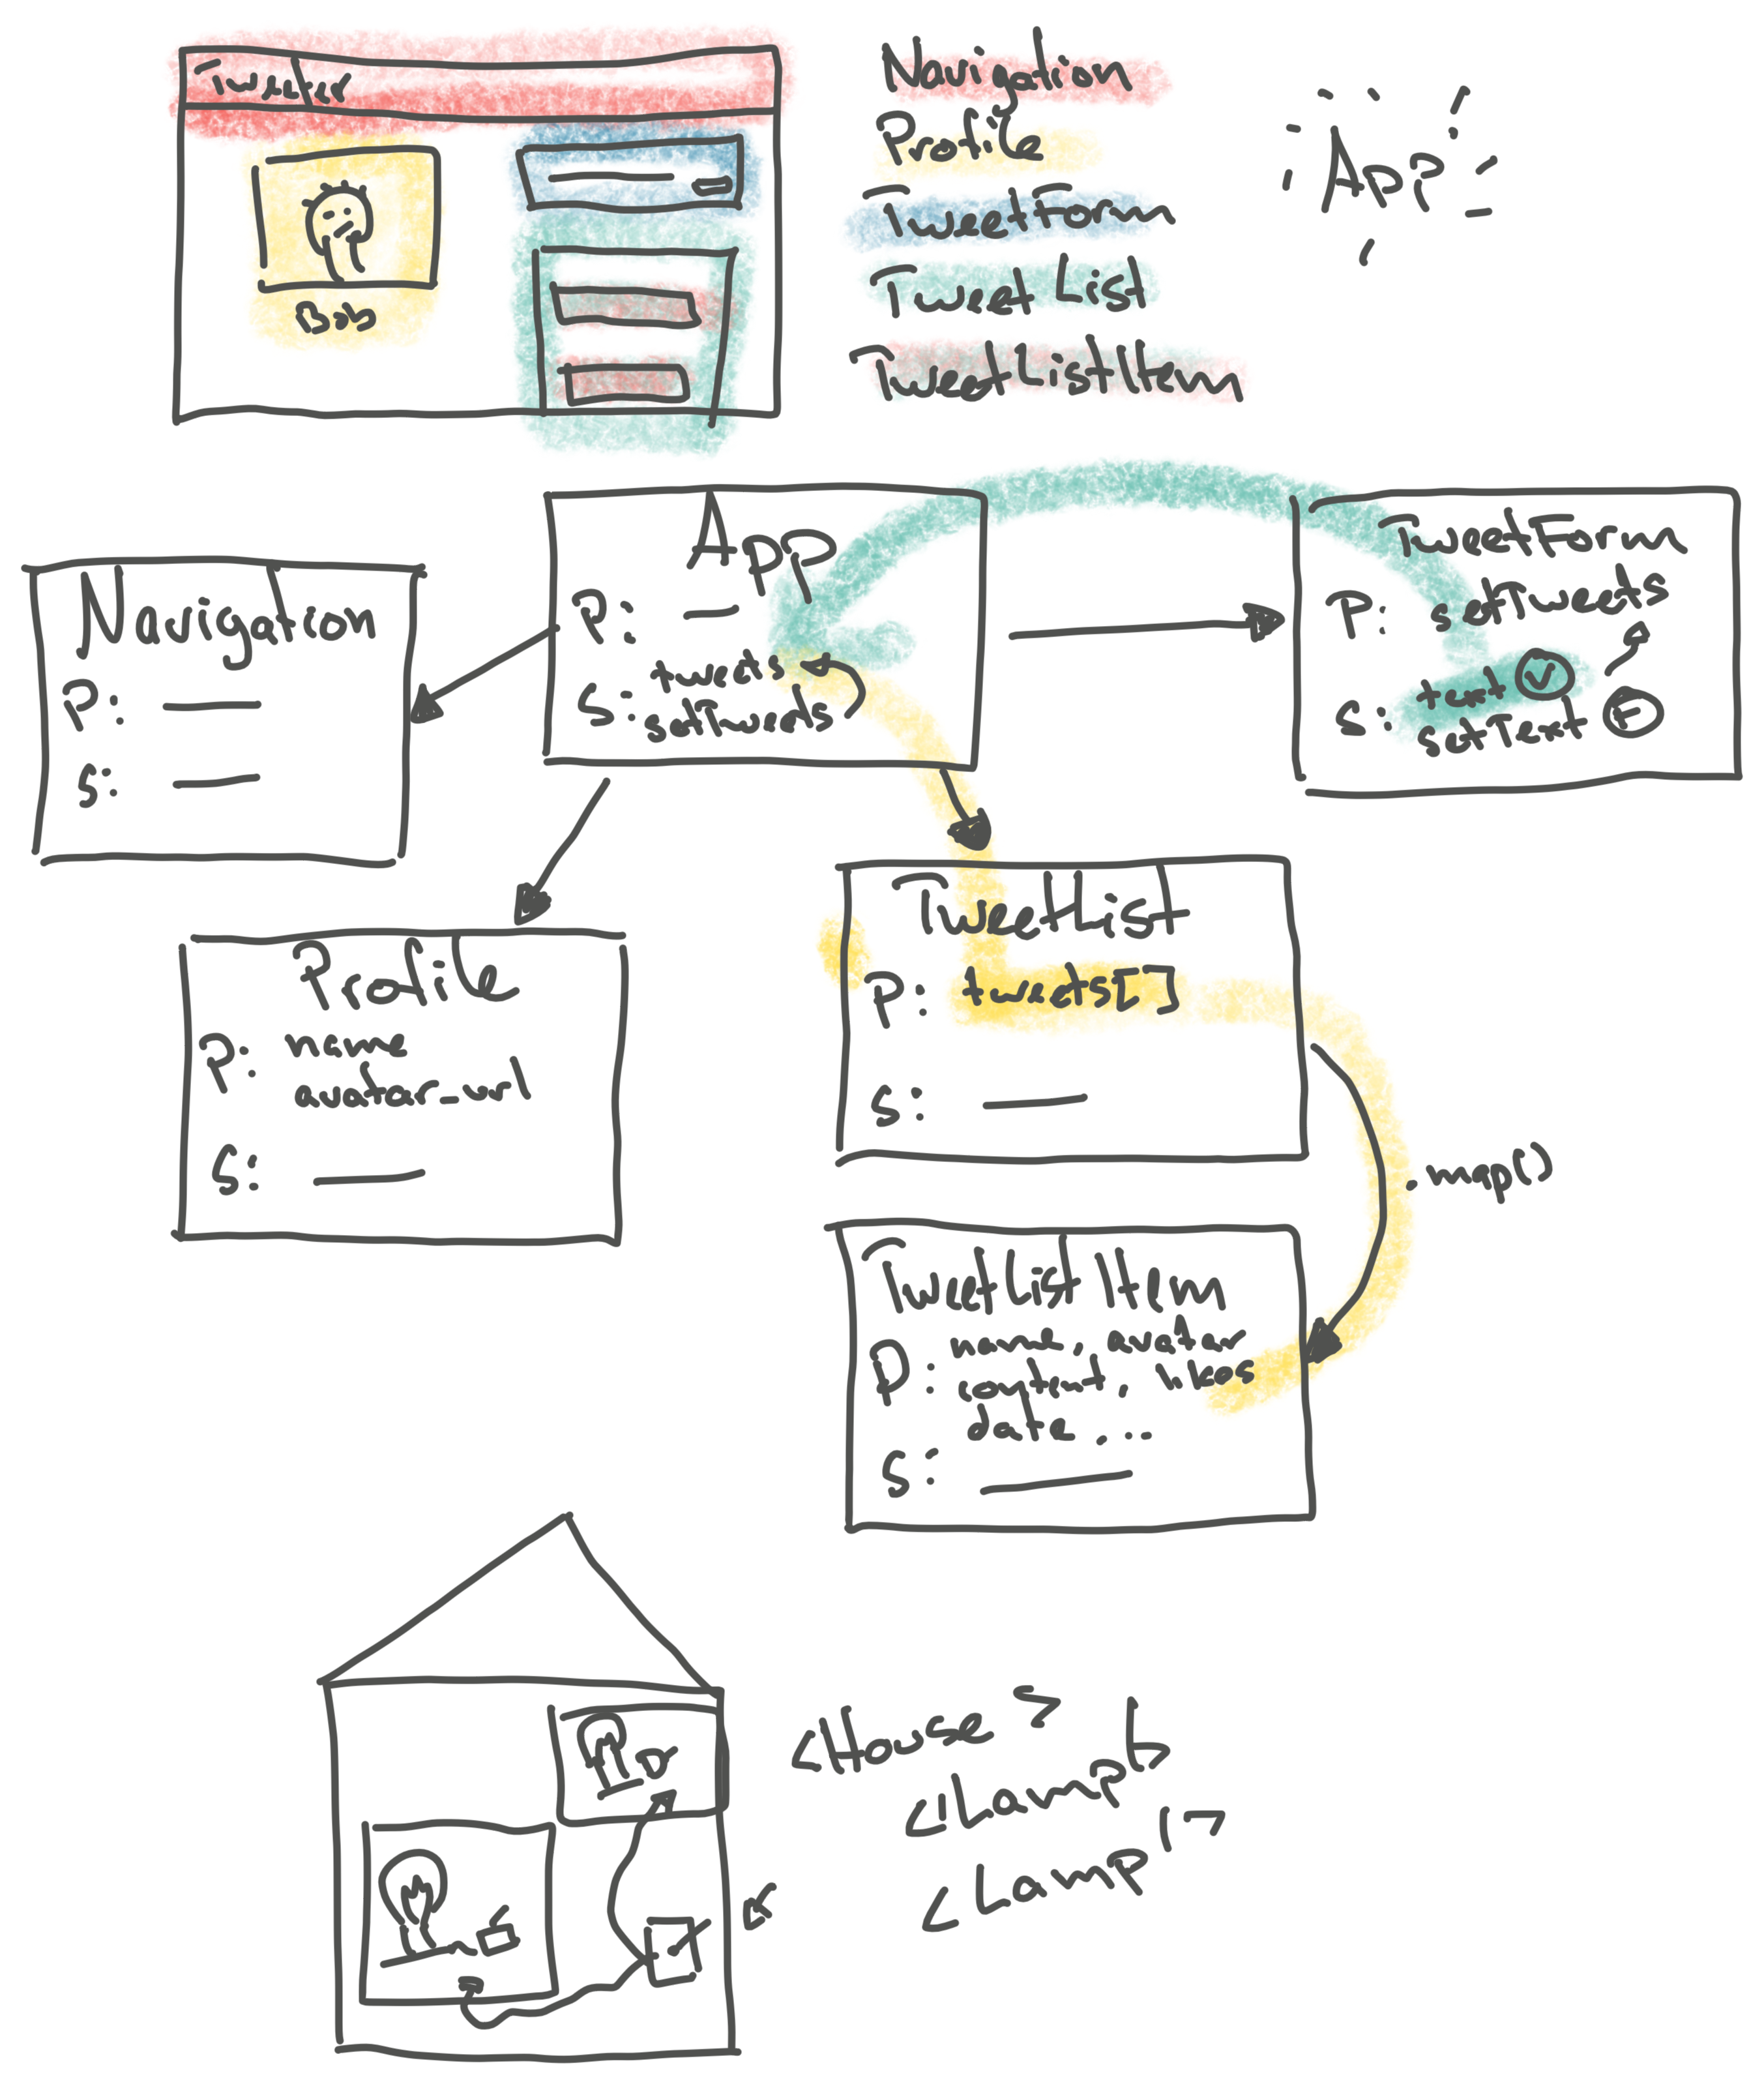 Tweeter
Bob
Navigation
Profile
TweetForm
Tweet List
TweetListItem
App
App
P: —
S: tweets
setTweets
TweetForm
P: setTweets
S: text V
setText F
Navigation
P: —
S: —
Profile
P: name
avatar_url
S: —
TweetList
P: tweets[]
S: —
.map()
TweetListItem
P: name, avatar
content, likes
date, ...
S: —
<House>
<Lamp/>
<Lamp/>